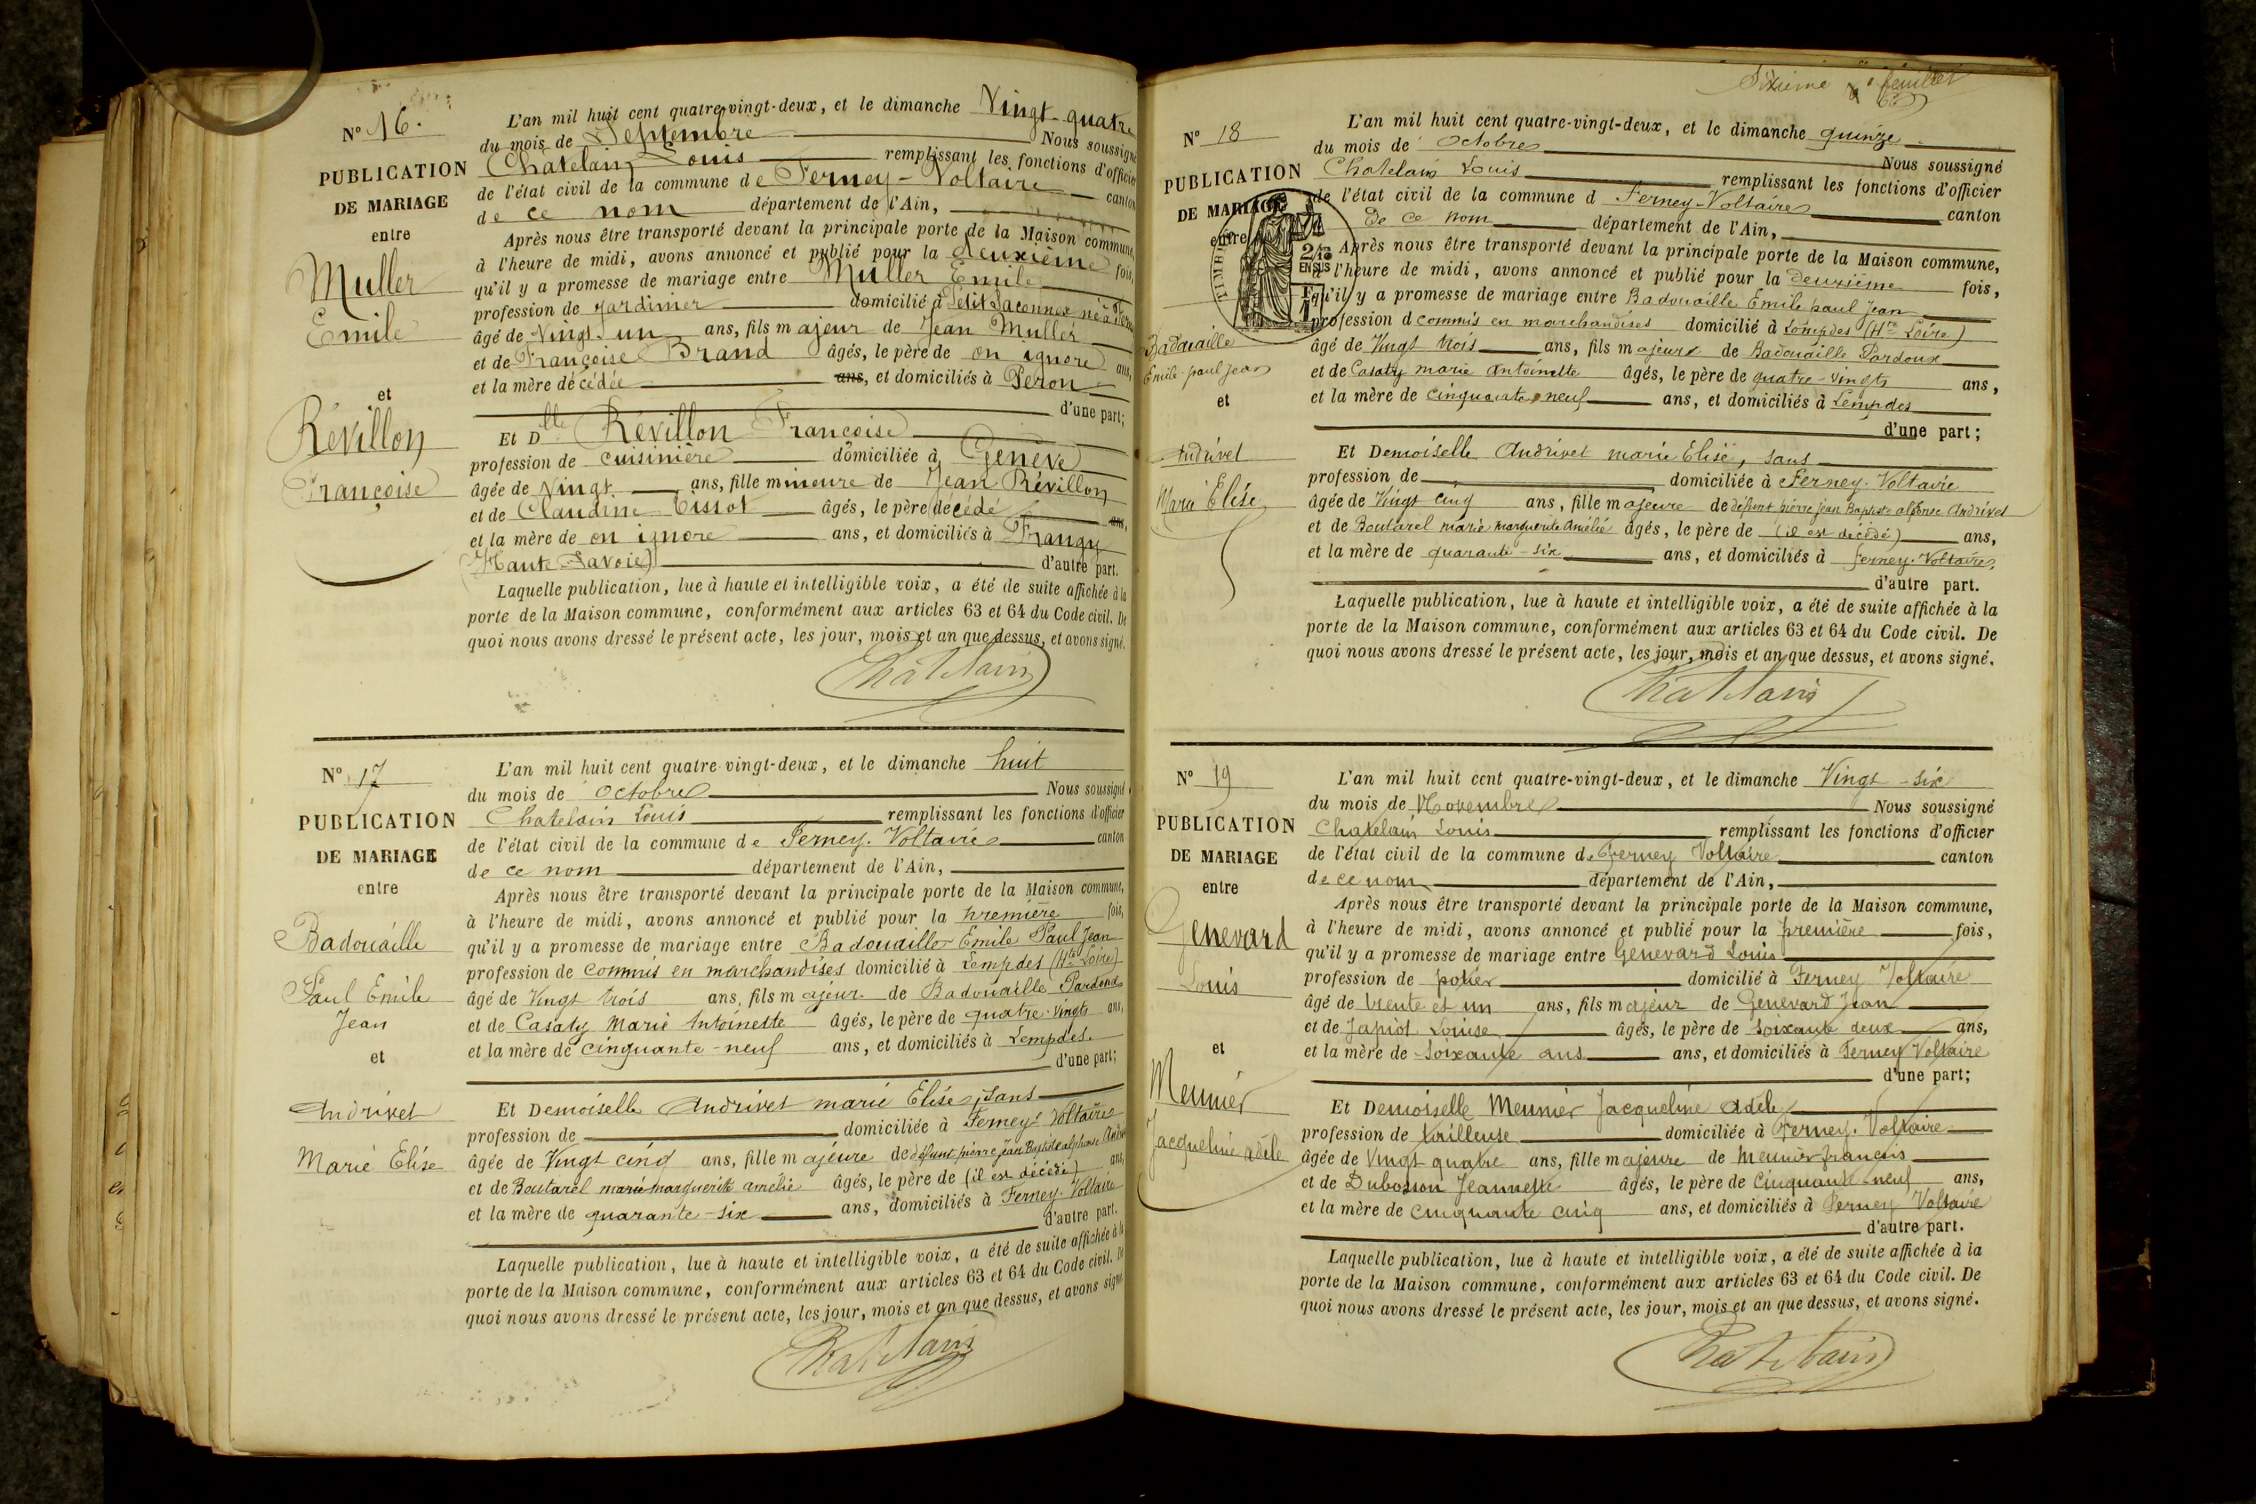 Nº 16.
PUBLICATION
DE MARIAGE
entre
Muller
Emile
et
Révillon
Françoise
L'an mil huit cent quatre-vingt-deux, et le dimanche Vingt-quatre
du mois de Septembre Nous soussigné
Chatelain Louis remplissant les fonctions d'officier
de l'état civil de la commune de Ferney-Voltaire canton
de ce nom département de l'Ain,
Après nous être transporté devant la principale porte de la Maison commune,
à l'heure de midi, avons annoncé et publié pour la deuxième fois,
qu'il y a promesse de mariage entre Muller Emile
profession de jardinier domicilié à Petit Saconnex né à
âgé de Vingt-un ans, fils majeur de Jean Muller
et de Françoise Brand âgés, le père de on ignore ans,
et la mère décédée ans, et domiciliés à Peron
d'une part;
Et Dlle Révillon Françoise
profession de cuisinière domiciliée à Genève
âgée de Vingt ans, fille mineure de Jean Révillon
et de Claudine Tissot âgés, le père décédé ans,
et la mère de on ignore ans, et domiciliés à Frangy
(Haute Savoie) d'autre part.
Laquelle publication, lue à haute et intelligible voix, a été de suite affichée à la
porte de la Maison commune, conformément aux articles 63 et 64 du Code civil. De
quoi nous avons dressé le présent acte, les jour, mois et an que dessus, et avons signé.
Châtelain
Nº 17
PUBLICATION
DE MARIAGE
entre
Badouaille
Paul Emile
Jean
et
Andrivet
Marie Elise
L'an mil huit cent quatre-vingt-deux, et le dimanche huit
du mois de octobre Nous soussigné
Chatelain Louis remplissant les fonctions d'officier
de l'état civil de la commune de Ferney-Voltaire canton
de ce nom département de l'Ain,
Après nous être transporté devant la principale porte de la Maison commune,
à l'heure de midi, avons annoncé et publié pour la première fois,
qu'il y a promesse de mariage entre Badouaille Emile Paul Jean
profession de commis en marchandises domicilié à Lempdes (Hte Loire)
âgé de Vingt trois ans, fils majeur de Badouaille Pardoux
et de Casaty Marie Antoinette âgés, le père de quatre-vingts ans,
et la mère de cinquante-neuf ans, et domiciliés à Lempdes.
d'une part;
Et Demoiselle Andrivet marie Elise, sans
profession de domiciliée à Ferney Voltaire
âgée de Vingt cinq ans, fille majeure de défunt pierre Jean Baptiste alphonse
et de Boutarel marie marguerite amélie âgés, le père de (il est décédé) ans,
et la mère de quarante-six ans, domiciliés à Ferney-Voltaire
d'autre part.
Laquelle publication, lue à haute et intelligible voix, a été de suite affichée à la
porte de la Maison commune, conformément aux articles 63 et 64 du Code civil. De
quoi nous avons dressé le présent acte, les jour, mois et an que dessus, et avons signé
Chatelain
Sixième feuillet
Nº 18
PUBLICATION
DE MARIAGE
entre
Badouaille
Emile paul jean
et
Andrivet
Marie Elise
L'an mil huit cent quatre-vingt-deux, et le dimanche quinze
du mois de Octobre Nous soussigné
Chatelain Louis remplissant les fonctions d'officier
de l'état civil de la commune d Ferney-Voltaire canton
De ce nom département de l'Ain,
Après nous être transporté devant la principale porte de la Maison commune,
à l'heure de midi, avons annoncé et publié pour la deuxième fois,
qu'il y a promesse de mariage entre Badouaille Emile paul Jean
profession d commis en marchandises domicilié à Lempdes (Hte Loire)
âgé de Vingt trois ans, fils majeur de Badouaille Pardoux
et de Casaty marie antoinette âgés, le père de quatre-vingts ans,
et la mère de cinquante neuf ans, et domiciliés à Lempdes
d'une part;
Et Demoiselle Andrivet marie Elise, sans
profession de domiciliée à Ferney-Voltaire
âgée de Vingt cinq ans, fille majeure de défunt pierre jean Baptiste alphonse Andrivet
et de Boutarel marie marguerite Amélie âgés, le père de (il est décédé) ans,
et la mère de quarante-six ans, et domiciliés à ferney-Voltaire,
d'autre part.
Laquelle publication, lue à haute et intelligible voix, a été de suite affichée à la
porte de la Maison commune, conformément aux articles 63 et 64 du Code civil. De
quoi nous avons dressé le présent acte, les jour, mois et an que dessus, et avons signé.
Chatelain
TIMBRE
2/10
EN SUS
Nº 19
PUBLICATION
DE MARIAGE
entre
Genevard
Louis
et
Meunier
Jacqueline adèle
L'an mil huit cent quatre-vingt-deux, et le dimanche Vingt-six
du mois de Novembre Nous soussigné
Chatelain Louis remplissant les fonctions d'officier
de l'état civil de la commune de Ferney Voltaire canton
de ce nom département de l'Ain,
Après nous être transporté devant la principale porte de la Maison commune,
à l'heure de midi, avons annoncé et publié pour la première fois,
qu'il y a promesse de mariage entre Genevard Louis
profession de potier domicilié à Ferney Voltaire
âgé de trente et un ans, fils majeur de Genevard Jean
et de Japiot Louise âgés, le père de soixante deux ans,
et la mère de soixante ans ans, et domiciliés à Ferney Voltaire
d'une part;
Et Demoiselle Meunier Jacqueline adèle
profession de tailleuse domiciliée à Ferney-Voltaire
âgée de Vingt quatre ans, fille majeure de Meunier françois
et de Dubosson Jeannette âgés, le père de cinquante neuf ans,
et la mère de cinquante cinq ans, et domiciliés à Ferney Voltaire
d'autre part.
Laquelle publication, lue à haute et intelligible voix, a été de suite affichée à la
porte de la Maison commune, conformément aux articles 63 et 64 du Code civil. De
quoi nous avons dressé le présent acte, les jour, mois et an que dessus, et avons signé.
Chatelain